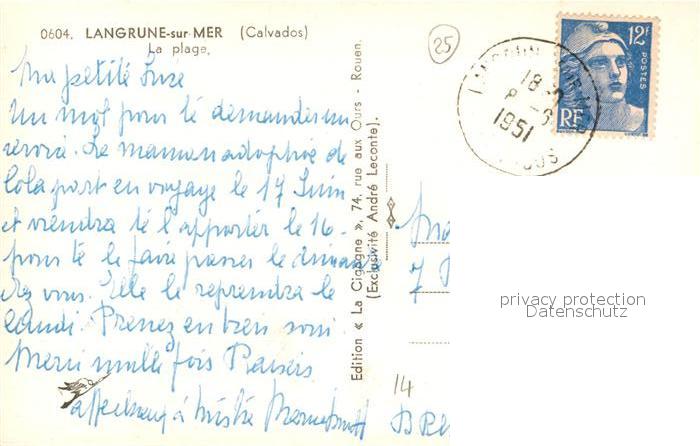 0604. LANGRUNE-sur-MER (Calvados)
La plage.
Ma petite
Un mot pour te demander un
La maman adoptive de
Lola part en voyage le 17 Juin
et viendra te l'apporter le 16
pour te le faire passer le dimanche
chez vous. Elle le reprendra le
lundi. Prenez en bien soin
Merci mille fois Baisers
Edition « La Cigogne », 74, rue aux Ours - Rouen.
(Exclusivité André Leconte).
25
12F
POSTES
RF
18
1951
7
14
privacy protection
Datenschutz